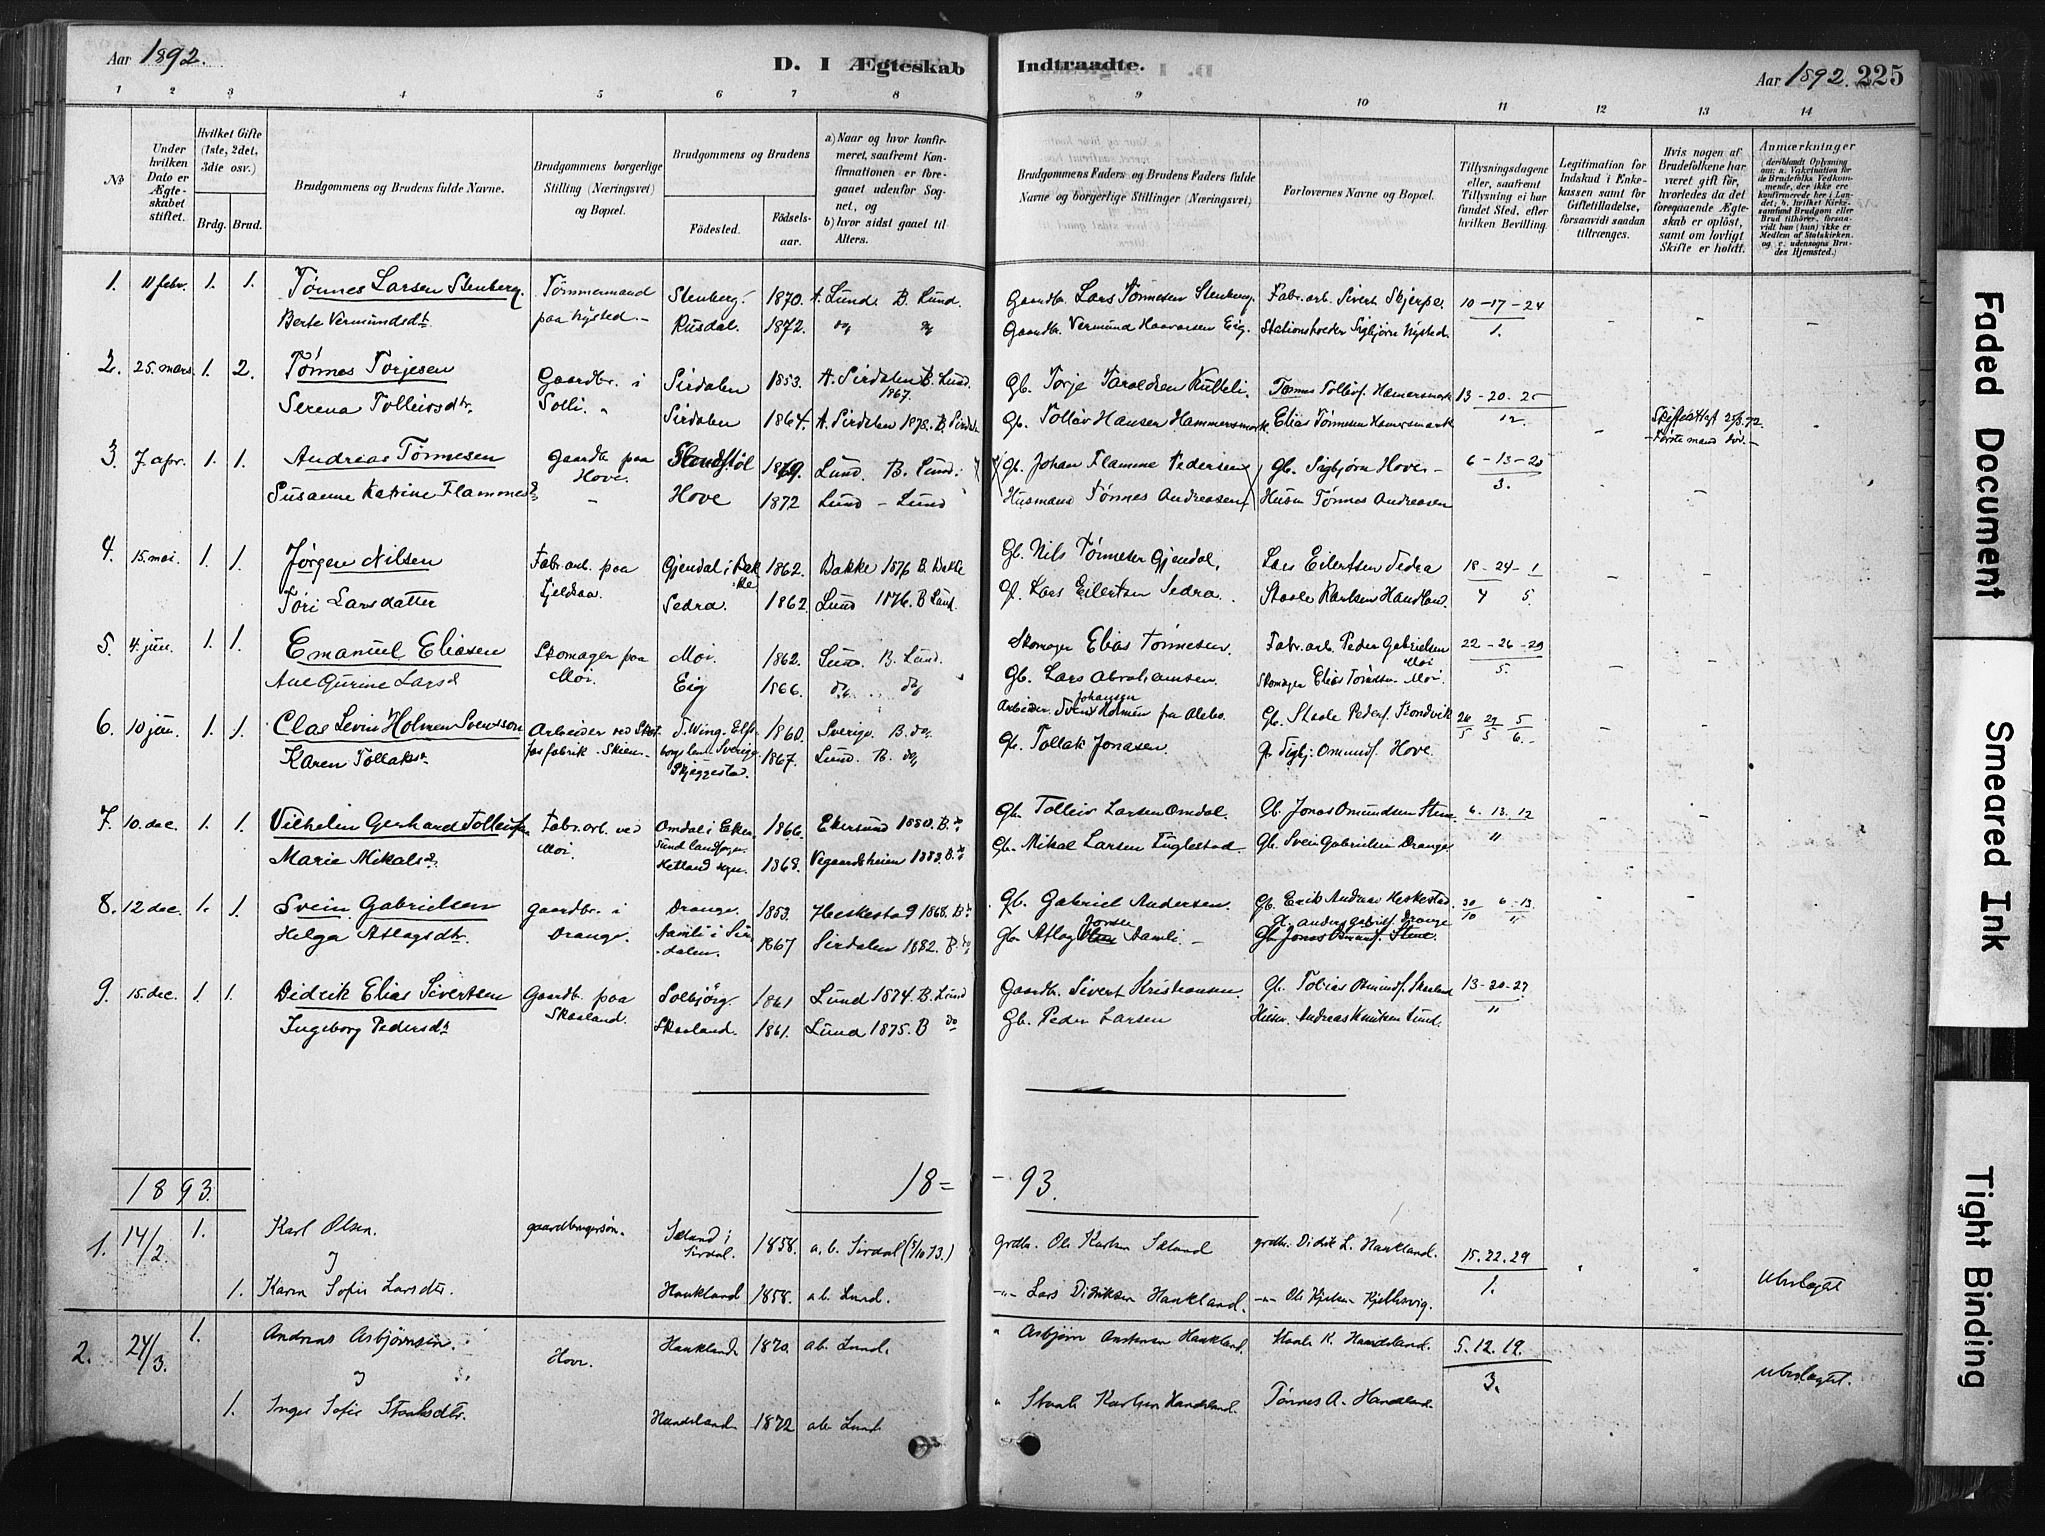 Aar 1892.
D. I Ægteskab Indtraadte.
Aar 1892. 225
1 2 3 4 5 6 7 8 9 10 11 12 13 14
No
Under hvilken Dato er Ægteskabet stiftet.
Hvilket Gifte (1ste, 2det, 3die osv.)
Brdg. Brud.
Brudgommens og Brudens fulde Navne.
Brudgommens borgerlige Stilling (Næringsvei) og Bopæl.
Brudgommens og Brudens
Födested.
Födselsaar.
a) Naar og hvor konfirmeret, saafremt Konfirmationen er foregaaet udenfor Sognet, og
b) hvor sidst gaaet til Alters.
Brudgommens Faders og Brudens Faders fulde Navne og borgerlige Stillinger (Næringsvei)
Forlovernes Navne og Bopæl.
Tillysningsdagene eller, saafremt Tillysning ei har fundet Sted, efter hvilken Bevilling.
Legitimation for Indskud i Enkekassen samt for Giftetilladelse, forsaavidt saadan tiltrænges.
Hvis nogen af Brudefolkene har været gift för, hvorledes da det foregaaende Ægteskab er oplöst, samt om lovligt Skifte er holdt.
Anmærkninger
(deriblandt Oplysning om: a. Vakcination for de Brudefolks Vedkommende, der ikke ere konfirmerede her i Landet; b. hvilket Kirkesamfund Brudgom eller Brud tilhörer, forsaavidt han (hun) ikke er Medlem af Statskirken, og c. udensogns Brudes Hjemsted.)
1. 11 febr. 1. 1. Tönnes Larsen Stenberg. Tömmermand Stenberg. 1870. A. Lund. B. Lund. Gaardbr. Lars Tönnesen Stenberg. Fabr.arb. Sivert Skjerpe. 10-17-24
Berte Vermundsdtr. paa Nysted. Rusdal. 1872. do do Gaardbr. Vermund Haavarsen Eig. Stationsholder Sigbjörn Nysted. 1.
2. 25. mars. 1. 2. Tönnes Torjesen Gaardbr. i Sirdalen 1853. A. Sirdalen B. Lund. 1867. Gb. Torje Taraldsen Tönnes Tollevs. Hamersmark 13-20-25
Serena Tolleivsdtr. Solli. Sirdalen 1864. A. Sirdalen 1878. B. Sirdalen Gb. Tolleiv Hansen Hammersmark. Elias Tönnesen Hamersmark 12. Förste mand död.
3. 7. apr. 1. 1. Andreas Tönnesen Gaardb. paa 1869. Lund. B. Lund. Gb. Johan Flamme Pedersen Gb. Sigbjörn Hove. 6-13-20
Susanne Katrine Flammesd. Hove. Hove 1872 Lund - Lund Husmand Tönnes Andreasen Husm Tönnes Andreasen 3.
4. 15. mai. 1. 1. Jörgen Nilsen Fabr.arb. paa Gjendal i Bakke 1862. Bakke 1876 B. Bakke Gb. Nils Tönnesen Gjendal. Lars Eilertsen Sedra 18-24-1
Töri Larsdatter Fjeldsaa. Sedra. 1862 Lund 1876. B Lund. Gb. Lars Eilertsen Sedra. Staale Karlsen Handland. 4 5.
5. 4. jun. 1. 1. Emanuel Eliasen Skomager paa Moi. 1862. Lund. B. Lund. Skomager Elias Tönnesen. Fabr.arb. Peder Gabrielsen Moi 22-26-29
Ane Gurine Larsd Moi. Eig 1866. do. do Gb. Lars Abrahamsen. Skomager Elias Tönnesen Moi. 5.
6. 10 jun. 1. 1. Clas Levin Holmen Svensson Arbeider ved T. Wing. Elfsborgs len. Sverige. 1860. Sverige. B. do. Arbeider. Svend Johansen Holmén fra Gb. Staale Peders. 26/5 29/5 5/6.
Karen Tollaksdr. fabrik. Skien. Skjeggestad. 1867. Lund. B. do Gb. Tollak Jonasen. Gb. Sigbj. Omunds. Hove.
7. 10. dec. 1. 1. Vilhelm Gerhard Tolleivsen Fabr.arb. ved Omdal i Ekersund landsogn. 1866. Ekersund 1880. B. do Gb. Tolleiv Larsen Omdal. Gb. Jonas Omundsen Stene 6. 13. 12
Marie Mikalsd. Moi. Hetland sogn. 1868. Vegaardsheim 1883. B. do Gb. Mikal Larsen Fuglestad. Gb. Svein Gabrielsen Drange. 11
8. 12 dec. 1. 1. Svein Gabrielsen Gaardbr. i Drange. 1853. Heskestad 1868. B. do Gb. Gabriel Andersen. Gb. Erik Andreas Heskestad. 30/10 6-13
Helga Atlagsdtr. Drange. Aamli i Sirdalen. 1867 Sirdalen 1882. B. do Gb. Atlag Aamli Gb. Anders Gabriels. Drange 11
Gb. Jonas Omunds. Stene.
9. 15. dec. 1. 1. Didrik Elias Sivertsen Gaardb. paa Solbjörg. 1861 Lund 1874. B. Lund Gaardbr. Sivert Kristiansen. Gb. Tobias Omunds. Skaaland 13-20-27
Ingeborg Pedersdtr Skaaland. Skaaland. 1861. Lund 1875. B do Gb. Peder Larsen Andreas Knutsen Lund. 11
1893. 18 = - 93.
1. 14/2 1. Karl Olsen gaardbrugersön. Sæland i Sirdal. 1858. a. b. Sirdal (5/10 73.) grdbr. Ole Karlsen Sæland grdbr. Didrik L. Haukland. 15.22.29
og
1. Karen Sofie Larsdtr. Haukland 1858. ab. Lund. -"- Lars Didriksen Haukland. -"- Ole Kjelsen Kjellesvig. 1. Ubeslægtet
2. 24/3. 1. Andreas Asbjørnsen. Hove. Haukland. 1870. ab. Lund. " Asbjørn Haukland. Staale K. Handeland. 5.12.19.
og
1. Inger Sofie Staalesdtr. Handeland 1872 ab Lund. " Staale Karlsen Handeland. Tönnes A. Handeland. 3. ubeslægtet.
Faded Document
Smeared Ink
Tight Binding